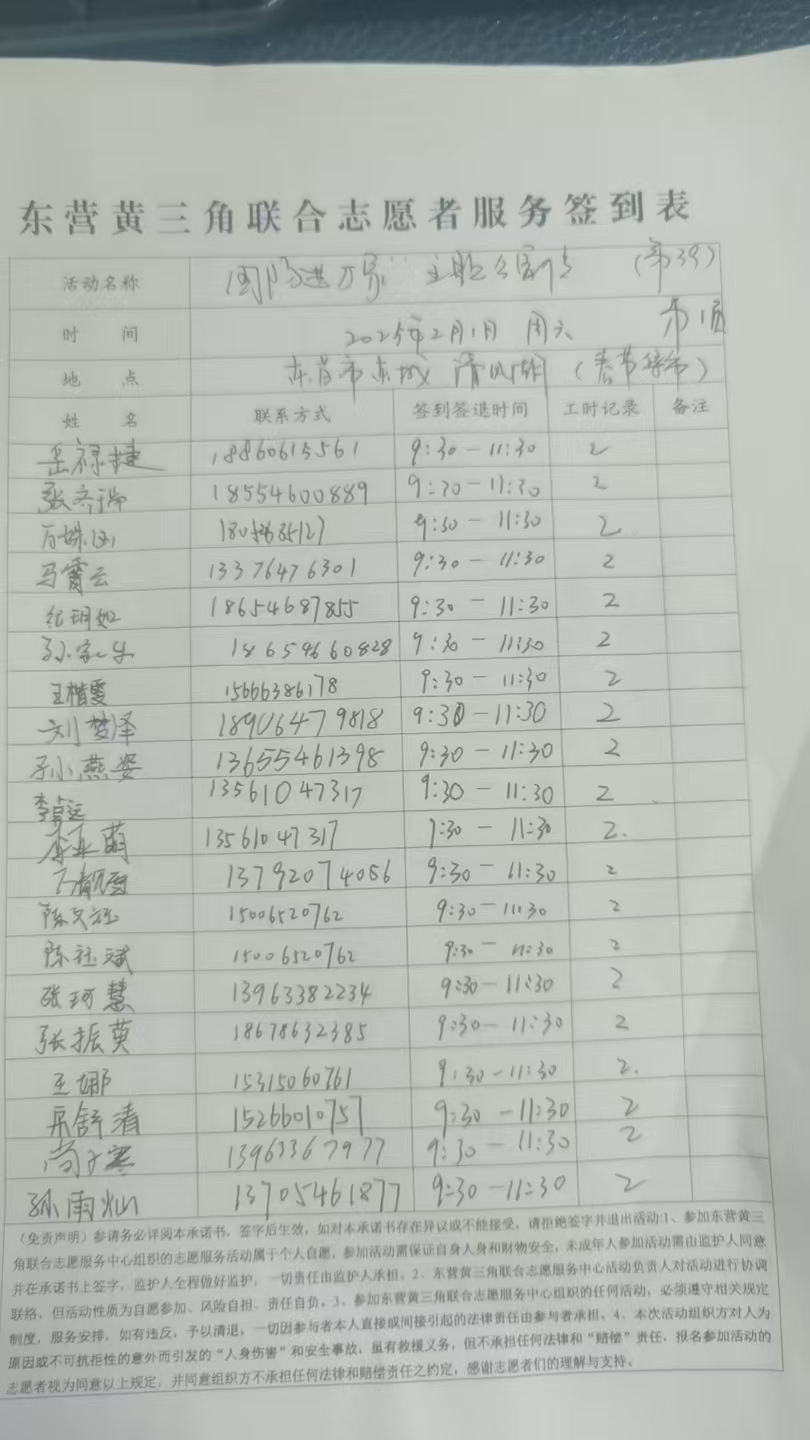 东营黄三角联合志愿者服务签到表
活动名称 国防进万家 主题 (第39)
时 间 2025年2月1日 周六
地 点 东营市东城 清风湖 (春节
姓 名 联系方式 签到签退时间 工时记录 备注
岳禄捷 18860615561 9:30-11:30 2
张齐瑞 18554600889 9:30-11:30 2
9:30-11:30 2
马霄云 13376476301 9:30-11:30 2
纪玥如 18654687855 9:30-11:30 2
18659660828 9:30-11:30 2
王楷雯 15666386178 9:30-11:30 2
刘梦泽 18906479818 9:30-11:30 2
孙小燕姿 13655461398 9:30-11:30 2
李卓远 13561047317 9:30-11:30 2
李亚萌 13561047317 9:30-11:30 2.
13792074056 9:30-11:30 2
陈文钰 15006520762 9:30-11:30 2
陈钰斌 15006520762 9:30-11:30 2
张珂慧 13963382234 9:30-11:30 2
张振萸 18678632385 9:30-11:30 2
王娜 15315060761 9:30-11:30 2.
舒清 15266010757 9:30-11:30 2
尚子寒 13963367977 9:30-11:30 2
孙雨灿 13705461877 9:30-11:30 2
(免责声明)参请务必详阅本承诺书,签字后生效,如对本承诺书存在异议或不能接受,请拒绝签字并退出活动:1、参加东营黄三
角联合志愿服务中心组织的志愿服务活动属于个人自愿,参加活动需保证自身人身和财物安全,未成年人参加活动需由监护人同意
并在承诺书上签字,监护人全程做好监护,一切责任由监护人承担。2、东营黄三角联合志愿服务中心活动负责人对活动进行协调
联络,但活动性质为自愿参加、风险自担、责任自负。3、参加东营黄三角联合志愿服务中心组织的任何活动,必须遵守相关规定
制度,服务安排,如有违反,予以清退,一切因参与者本人直接或间接引起的法律责任由参与者承担。4、本次活动组织方对人为
原因或不可抗拒性的意外而引发的“人身伤害”和安全事故,虽有救援义务,但不承担任何法律和“赔偿”责任,报名参加活动的
志愿者视为同意以上规定,并同意组织方不承担任何法律和赔偿责任之约定,感谢志愿者们的理解与支持。